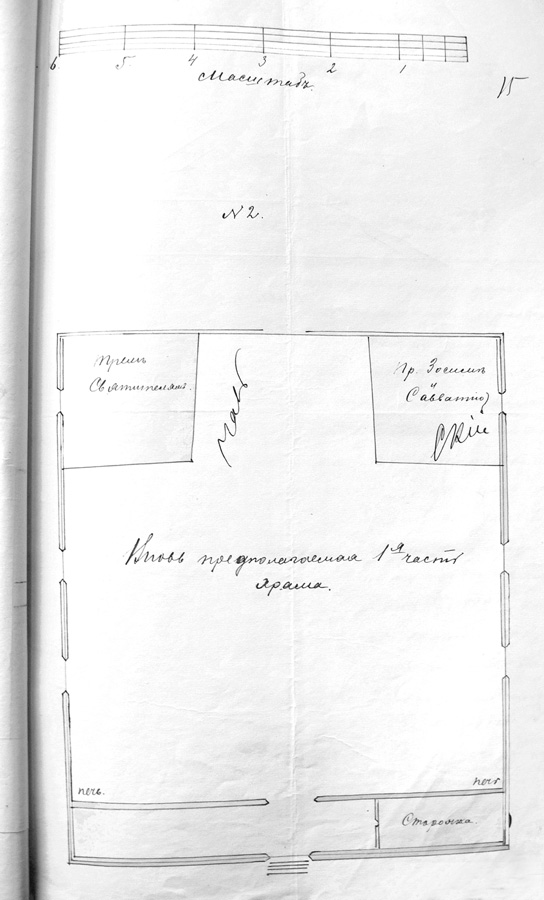 6 5 4 3 2 1
Масштабъ.
15
N 2.
Тремъ
Святителямъ.
Пр. Зосимѣ
и
Савватію
Вновь предполагаемая 1я часть
храма.
печь.
печь
Сторожка.